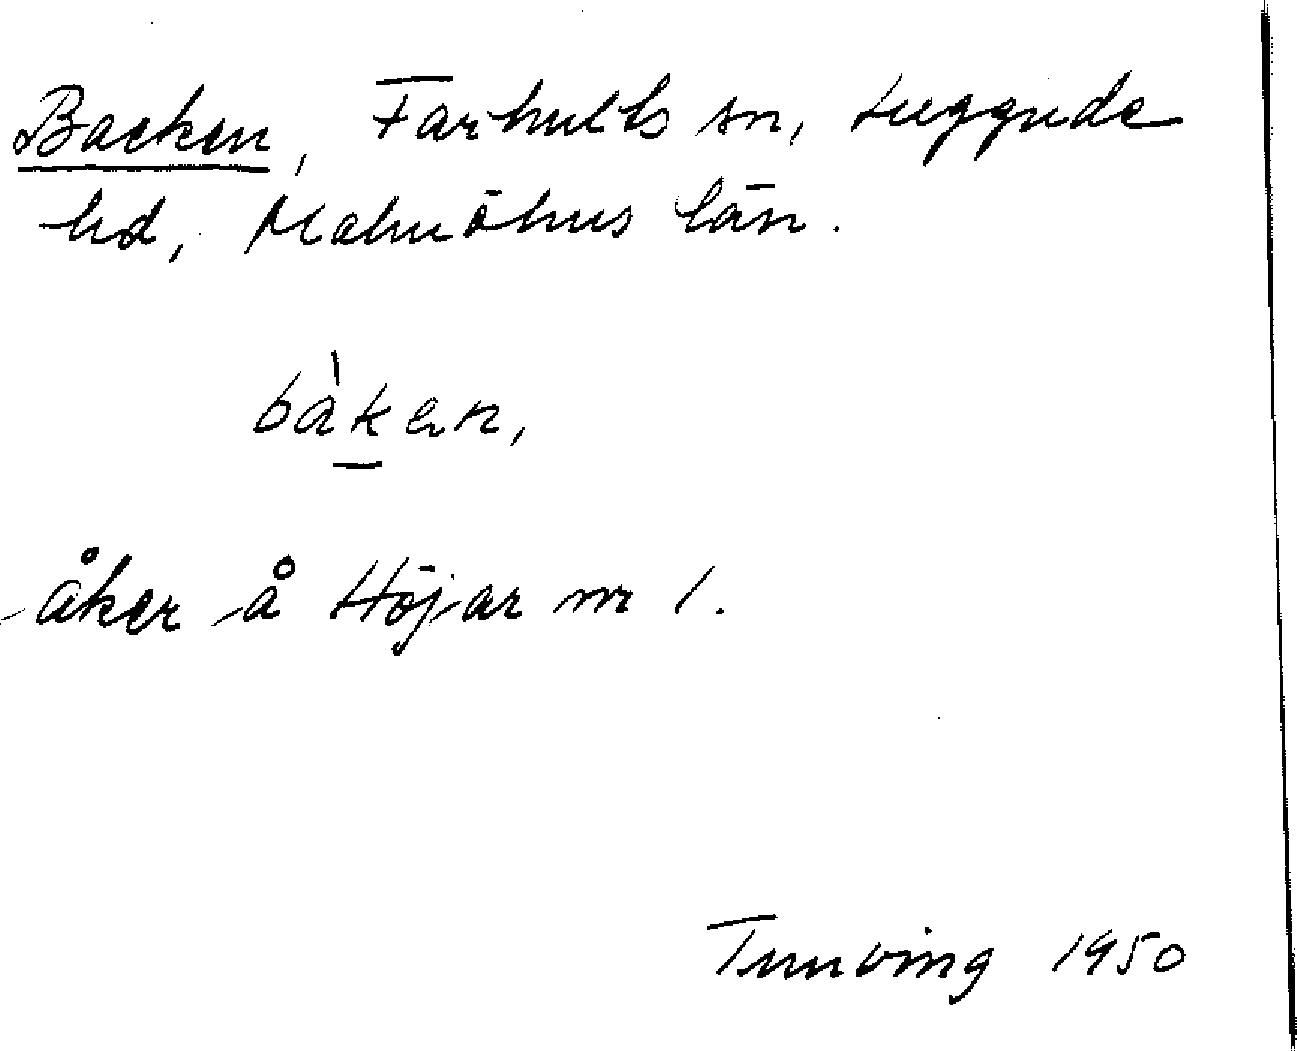 Backen, Farhults sn, Luggude
hd, Malmöhus län.
bàken,
åker å Höjar nr 1.
Tunving 1950